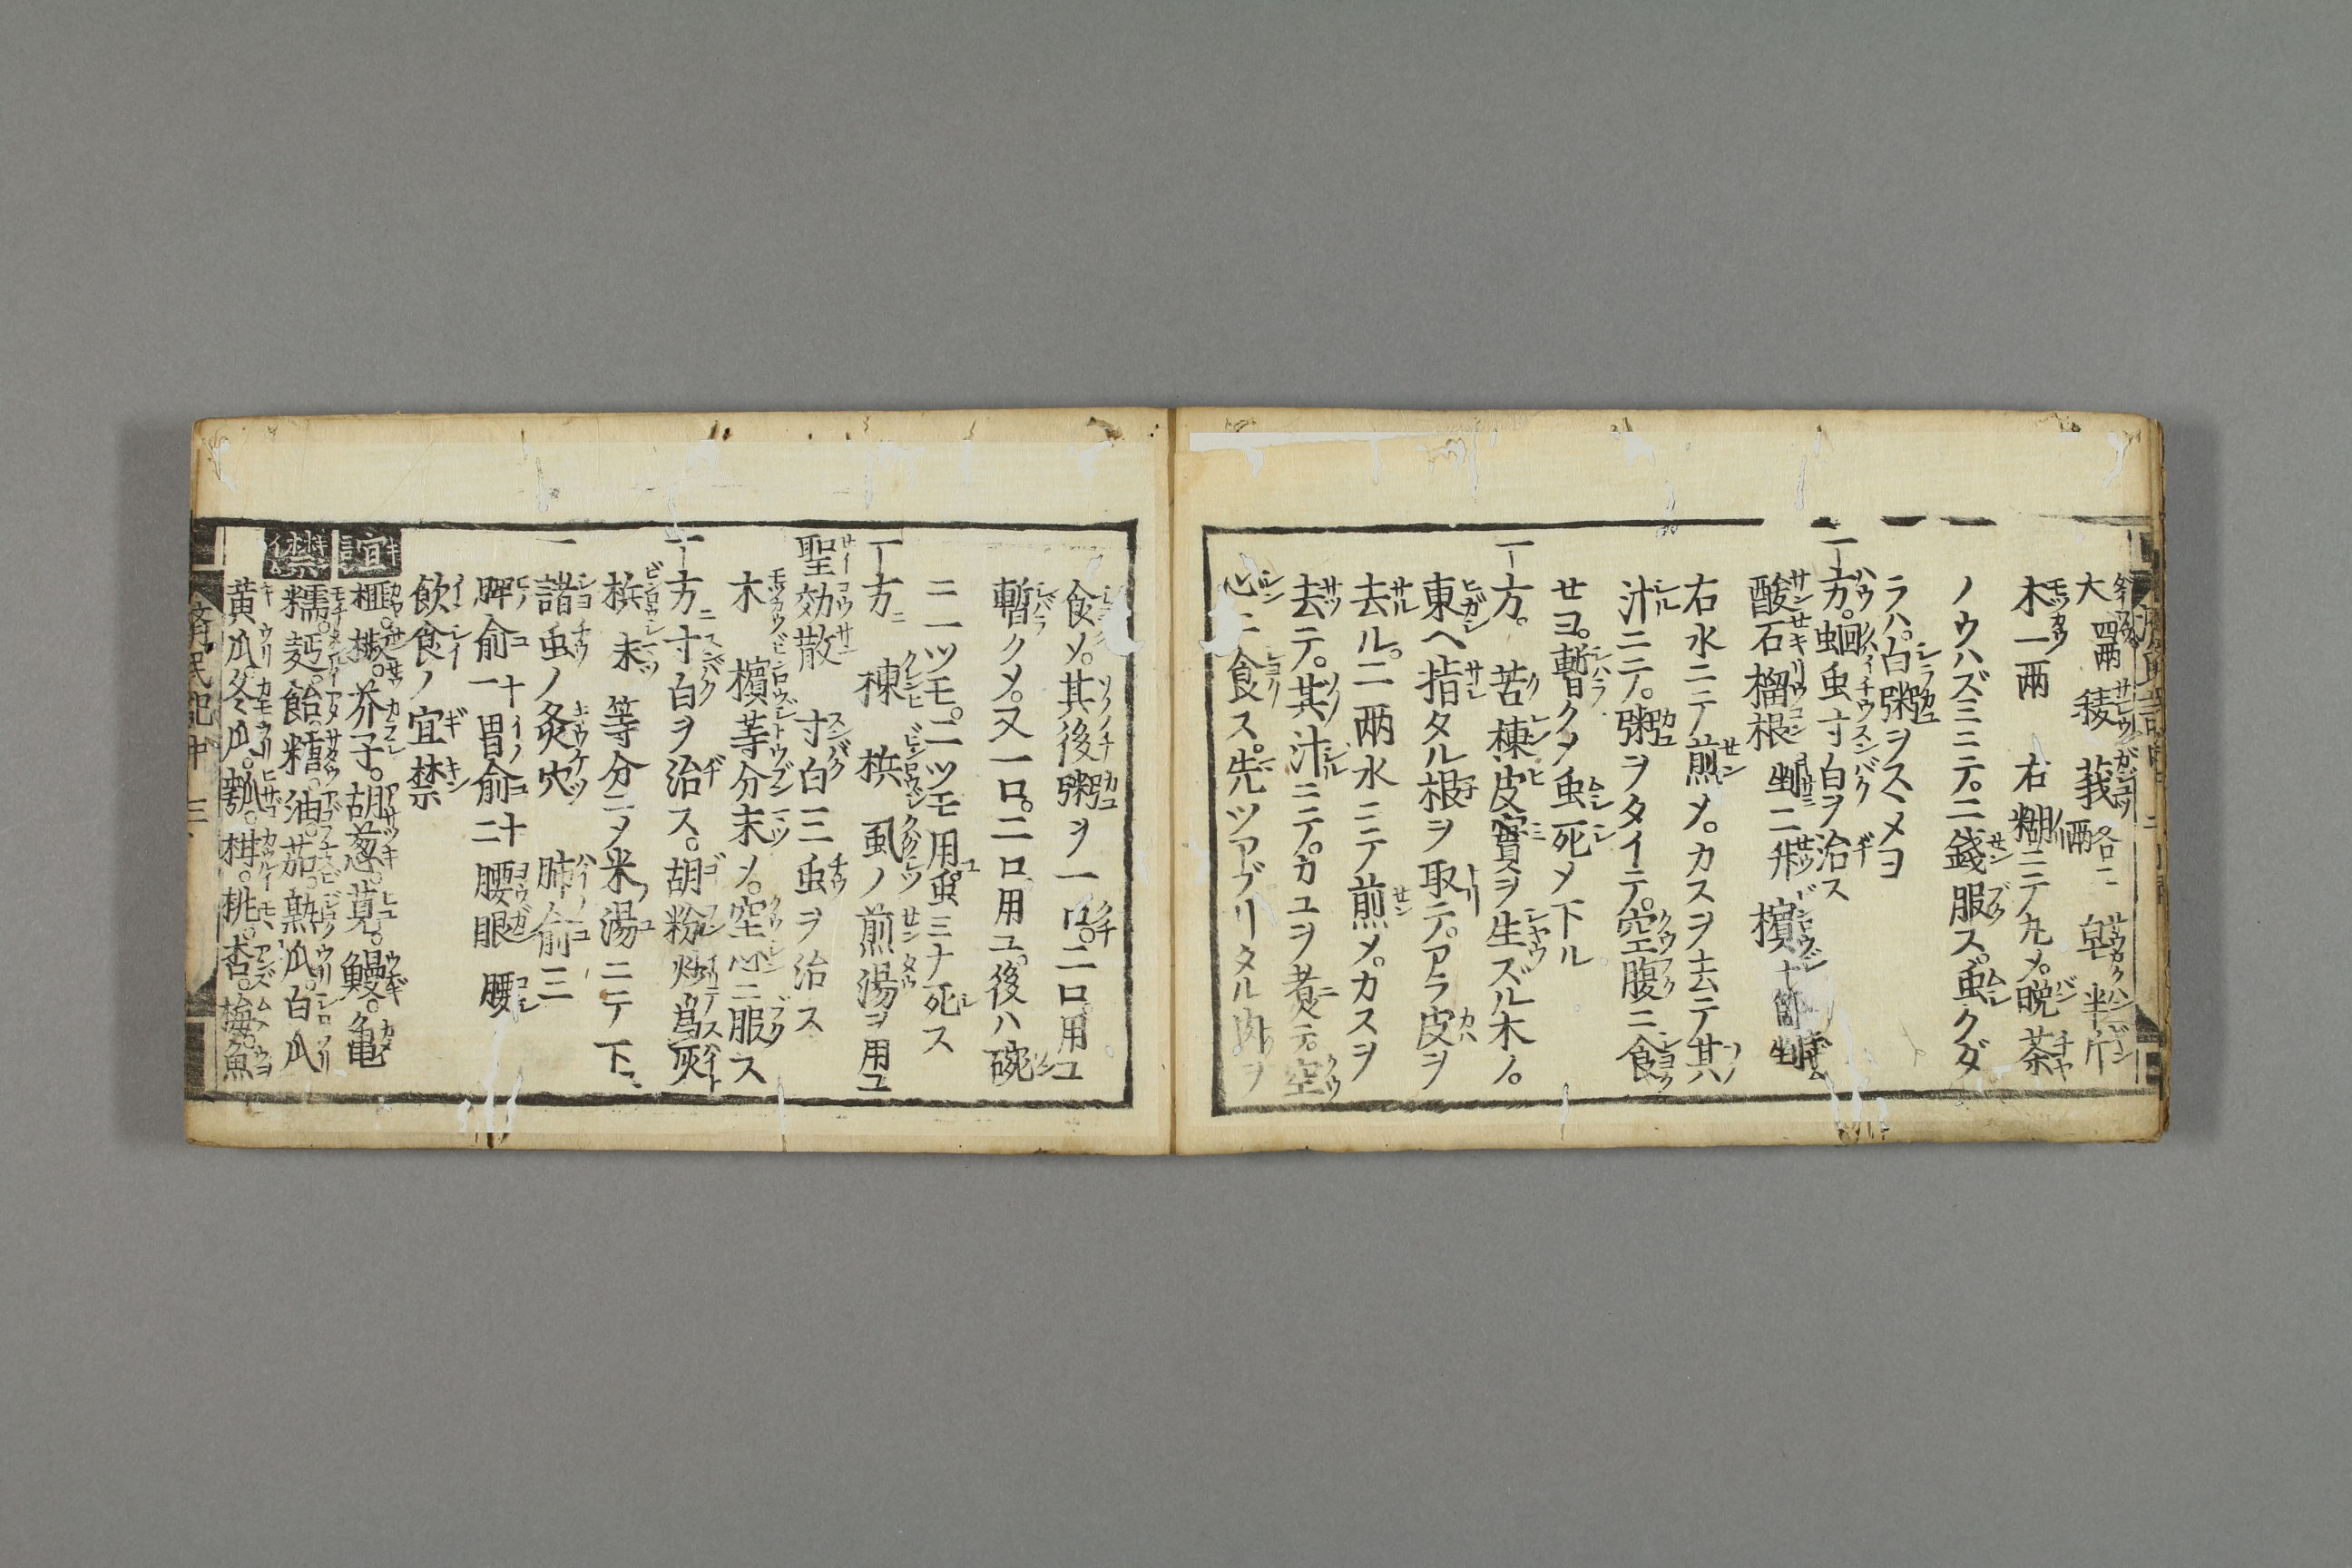 大 四兩 稜 莪 各二兩 皂 半斤
木一兩 右糊ニテ丸メ。晩茶
ノウハズミニテ。二錢服ス。虫クダ
ラハ。白粥ヲスヽメヨ
一方。蛔虫寸白ヲ治ス
酸石榴根 二升 檳 十箇
右水ニテ煎メ。カスヲ去テ其
汁ニテ。粥ヲタイテ。空腹ニ食
セヨ。暫クメ虫死メ下ル
一方。苦楝皮實ヲ生ズル木ノ。
東ヘ指タル根ヲ取テ。アラ皮ヲ
去ル。二兩水ニテ煎メ。カスヲ
去テ。其汁ニテ。カユヲ煮テ。空
心ニ食ス。先ツアブリタル肉ヲ
食メ。其後粥ヲ一口。二口。用ユ
暫クメ。又一口。二口。用ユ。後ハ碗
ニ一ツモ。二ツモ用。虫ミナ死ス
一方ニ 楝 梹 虱ノ煎湯ヲ用ユ
聖効散 寸白三虫ヲ治ス
木 檳等分末メ。空心ニ服ス
一方ニ寸白ヲ治ス。胡粉炒為灰
梹末等分ニメ米湯ニテ下ユ
一 諸虫ノ灸穴 肺俞三
脾俞十一 胃俞十二 腰眼 腰
飲食ノ宜禁
宜 榧。椒。芥子。胡葱。莧。鰻。亀
禁 糯。麪。飴。糟。油。茄。熟瓜。白瓜
黄瓜。冬瓜。瓢。柑。桃。杏。梅。魚